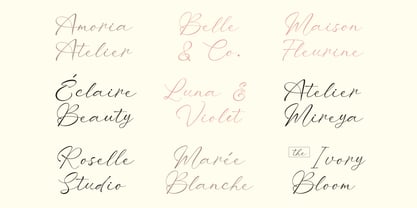 Amoria
Atelier
Belle
& Co.
Maison
Fleurine
Éclaire
Beauty
Luna &
Violet
Atelier
Mireya
Roselle
Studio
Marée
Blanche
the Ivory
Bloom